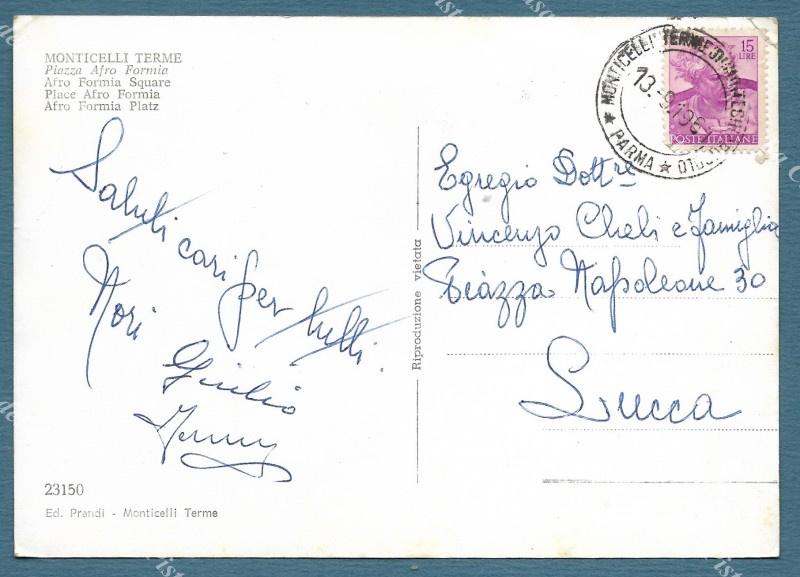 MONTICELLI TERME
Piazza Afro Formia
Afro Formia Square
Place Afro Formia
Afro Formia Platz
Saluti cari per tutti.
Nori
Giulio
Jenny
23150
Ed. Prandi - Monticelli Terme
Riproduzione vietata
15
LIRE
POSTE ITALIANE
MONTICELLI TERME DI MONTECHIARUGOLO
PARMA
13.-9.196
Egregio Dott.re
Vincenzo Cheli e famiglia
Piazza Napoleone 30
Lucca